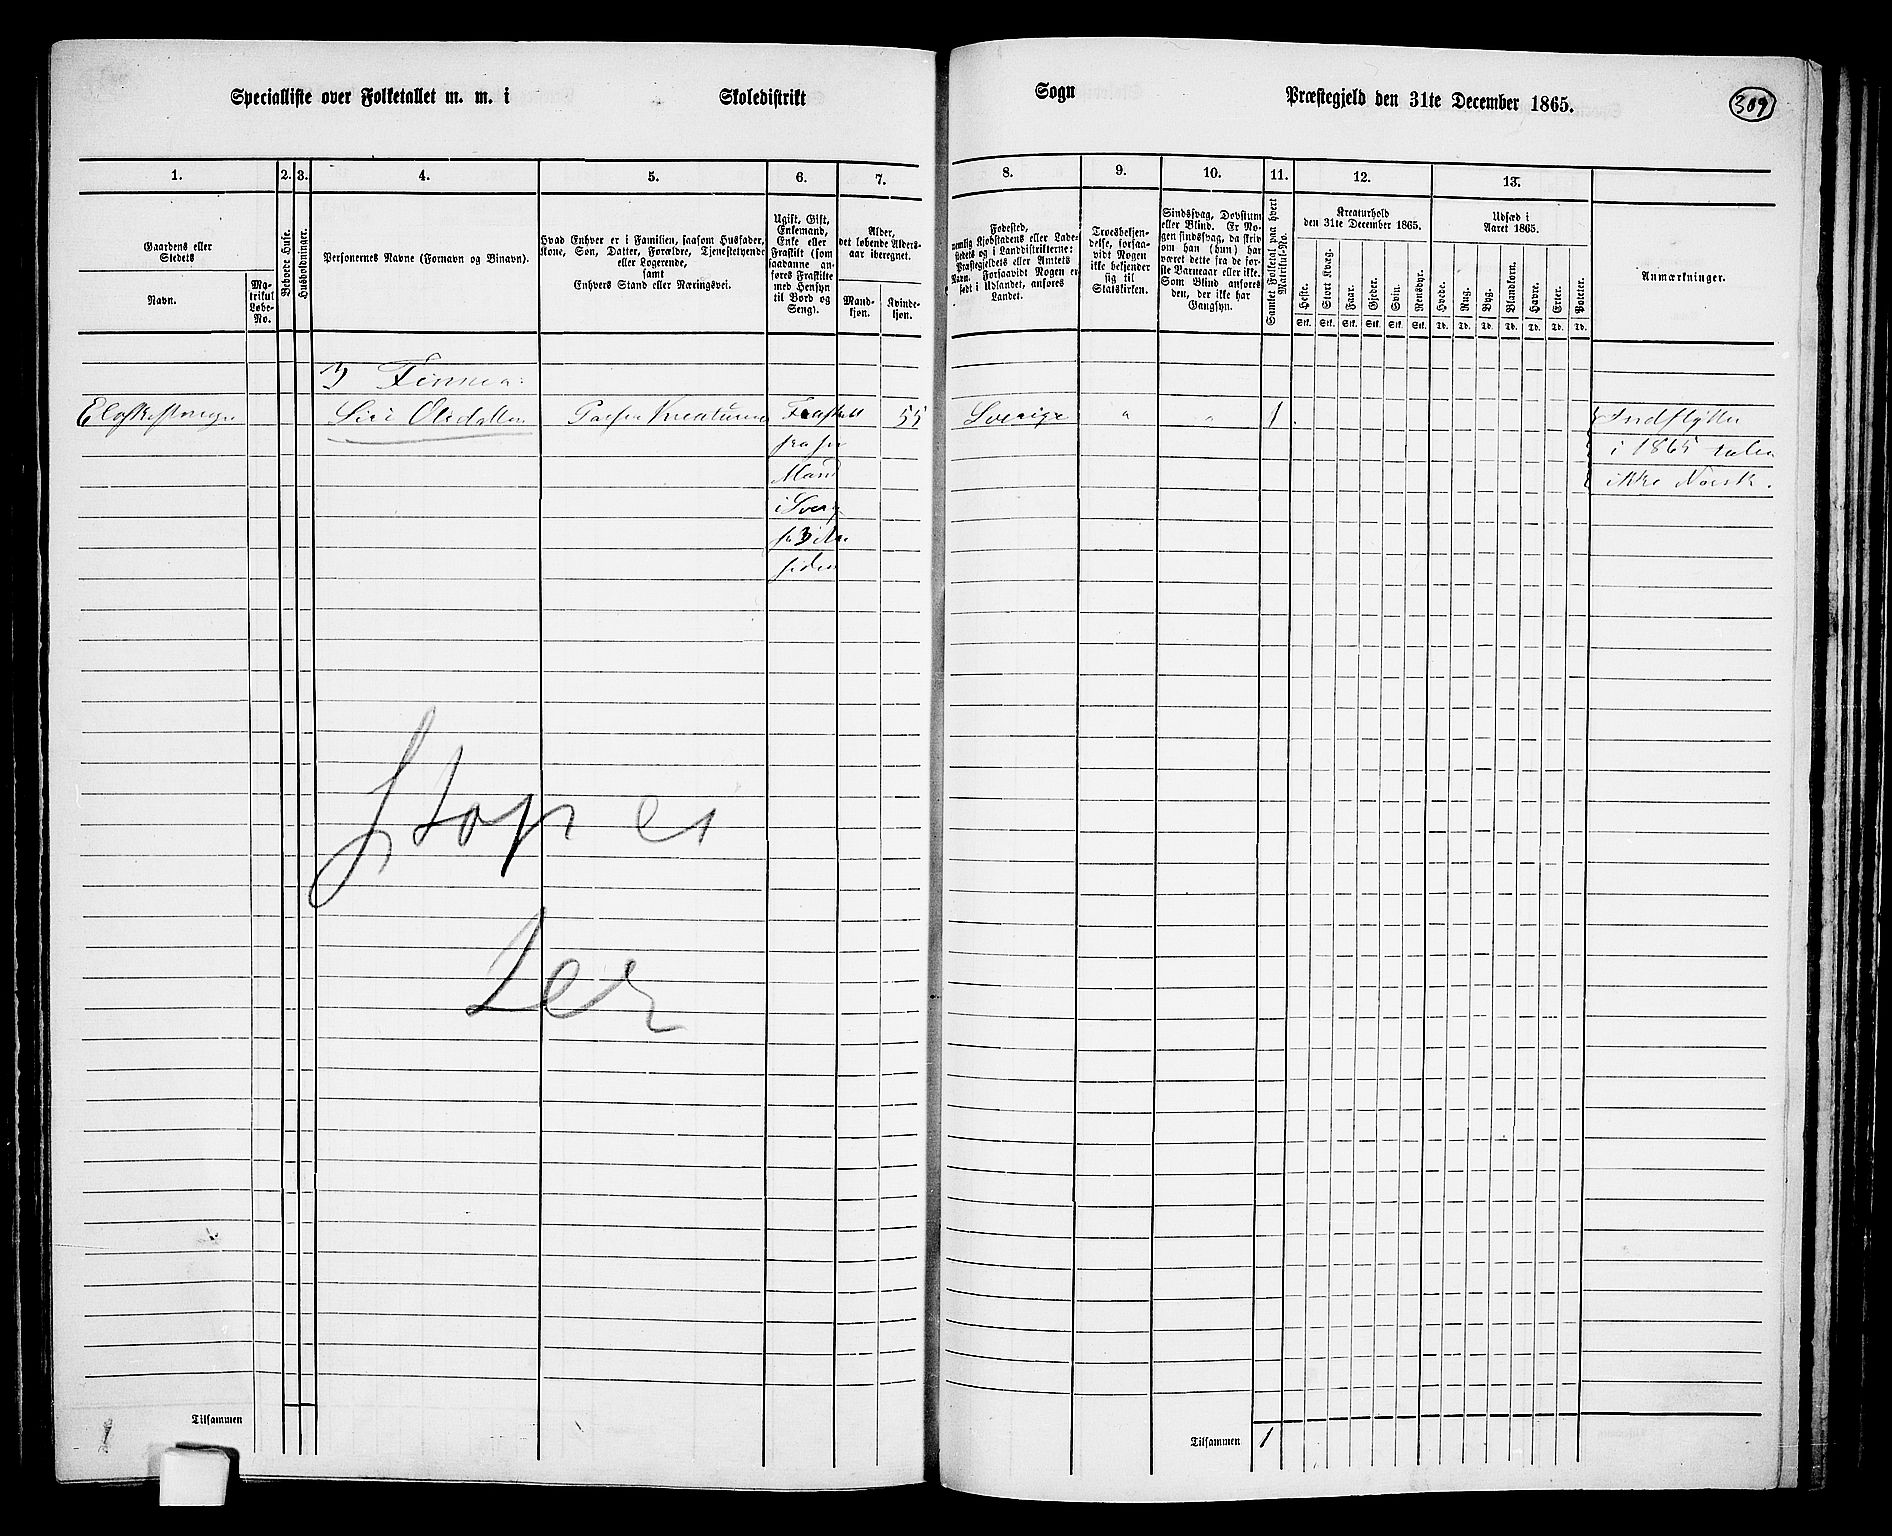 Specialliste over Folketallet m. m. i Skoledistrikt Sogn Præstegjeld den 31te December 1865. 309
1. 2. 3. 4. 5. 6. 7. 8. 9. 10. 11. 12. 13.
Gaardens eller
Stedets
Navn.
Ma-
trikul
Løbe-
No.
Beboede Huse.
Husholdninger.
Personernes Navne (Fornavn og Binavn).
Hvad Enhver er i Familien, saasom Husfader,
Kone, Søn, Datter, Forældre, Tjenestetyende
eller Logerende,
samt
Enhvers Stand eller Næringsvei.
Ugift, Gift,
Enkemand,
Enke eller
Fraskilt (som
saadanne an-
føres Fraskilte
med Hensyn
til Bord og
Seng).
Alder,
det løbende Alders-
aar iberegnet.
Mand-
kjøn.
Kvinde-
kjøn.
Fødested,
nemlig Kjøbstadens eller Lade-
stedets og i Landdistrikterne:
Præstegjeldets eller Amtets
Navn. Forsaavidt Nogen er
født i Udlandet, anføres
Landet.
Troesbekjen-
delse, forsaa-
vidt Nogen
ikke bekjender
sig til
Statskirken.
Sindssvag, Døvstum
eller Blind. Er No-
gen sindssvag, da skriv
om han (hun) har
været dette fra de før-
ste Barneaar eller ikke.
Som Blind anføres
den, der ikke har
Gangsyn.
Samlet Folketal paa hvert
Matrikuls-No.
Kreaturhold
den 31te December 1865.
Heste.
Stort Kvæg.
Faar.
Gjeder.
Svin.
Rensdyr.
Stk. Stk. Stk. Stk. Stk. Stk.
Udsæd i
Aaret 1865.
Hvede.
Rug.
Byg.
Blandkorn.
Havre.
Erter.
Poteter.
Td. Td. Td. Td. Td. Td. Td.
Anmærkninger.
Siri Kreaturene Fraskilt 55 Sverige " " 1 Indflytter
fra sin i 1865
Mand ikke Norsk.
i
siden
Stopes
Tilsammen
Tilsammen 1